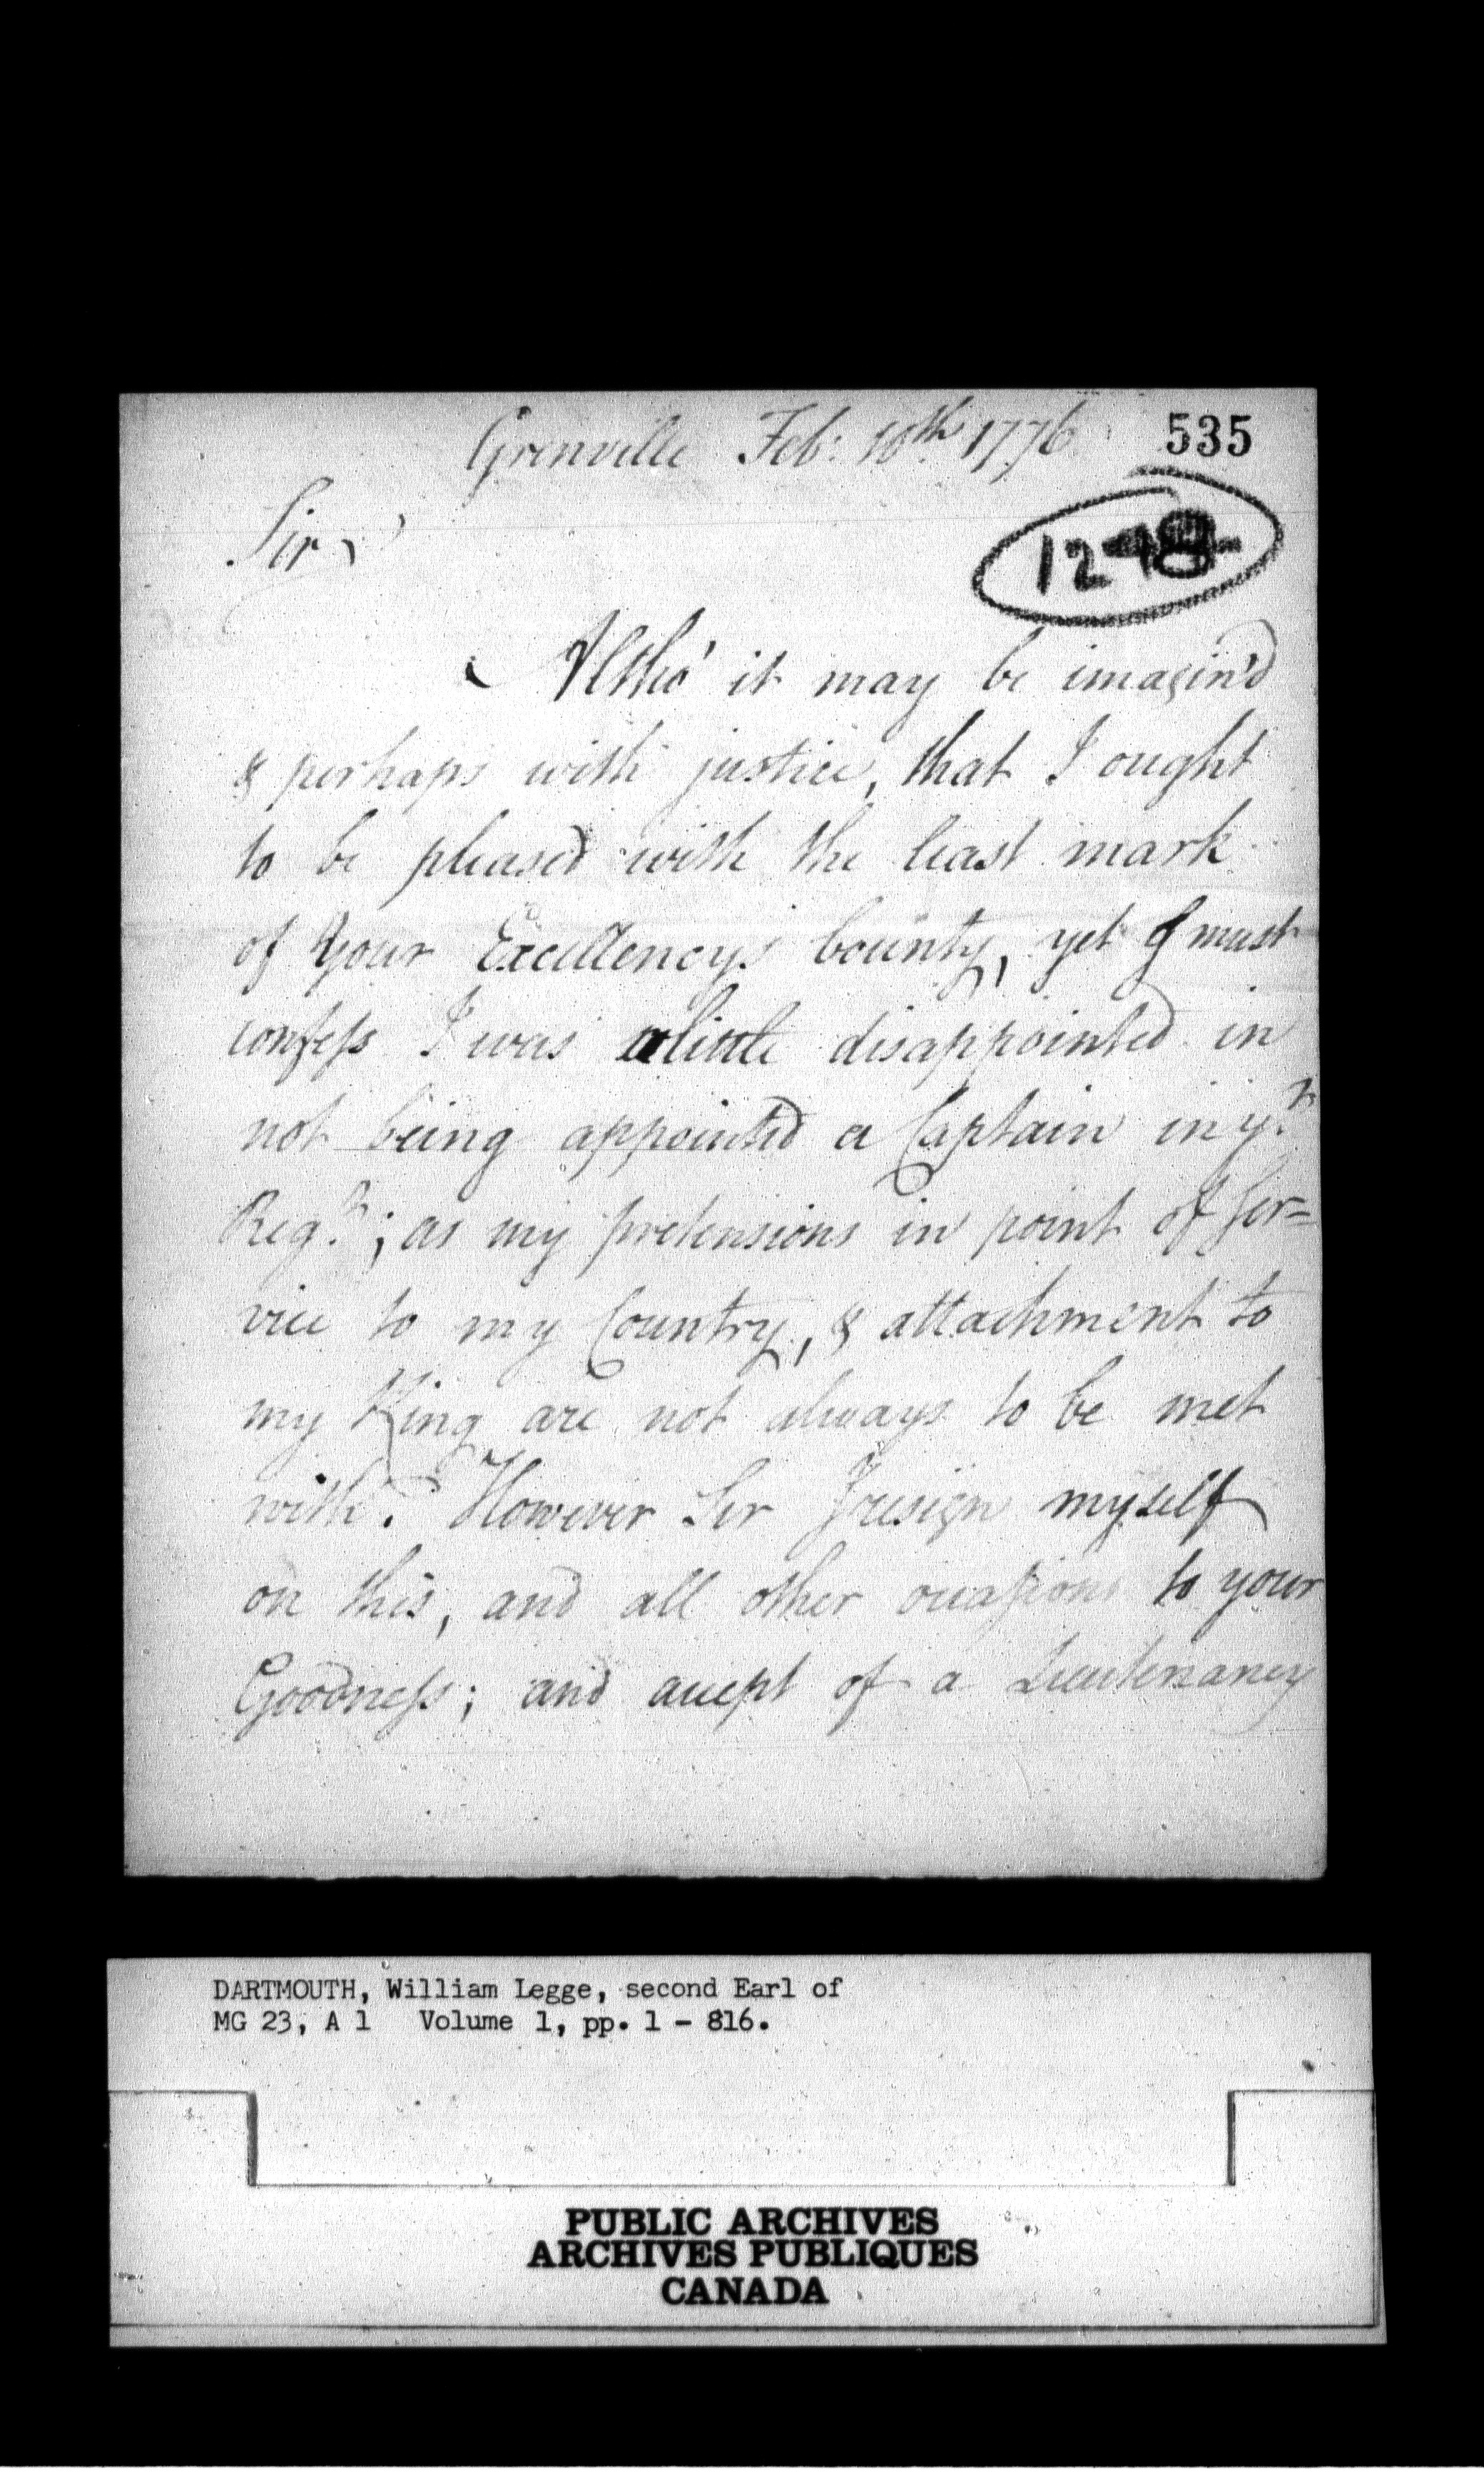 Grenville Feb: 10th 1776
535
Sir,
Altho' it may be imagin'd
& perhaps with justice, that I ought
to be pleased with the least mark
of Your Excellencys bounty, yet I must
confess I was a little disappointed in
not being appointed a Captain in yr.
Regt.; as my pretensions in point of Ser=
vice to my Country, & attachment to
my King are not always to be met
with. However Sir I resign myself
on this, and all other occasions to your
Goodness; and accept of a Lieutenancy
DARTMOUTH, William Legge, second Earl of
MG 23, A 1 Volume 1, pp. 1 - 816.
PUBLIC ARCHIVES
ARCHIVES PUBLIQUES
CANADA